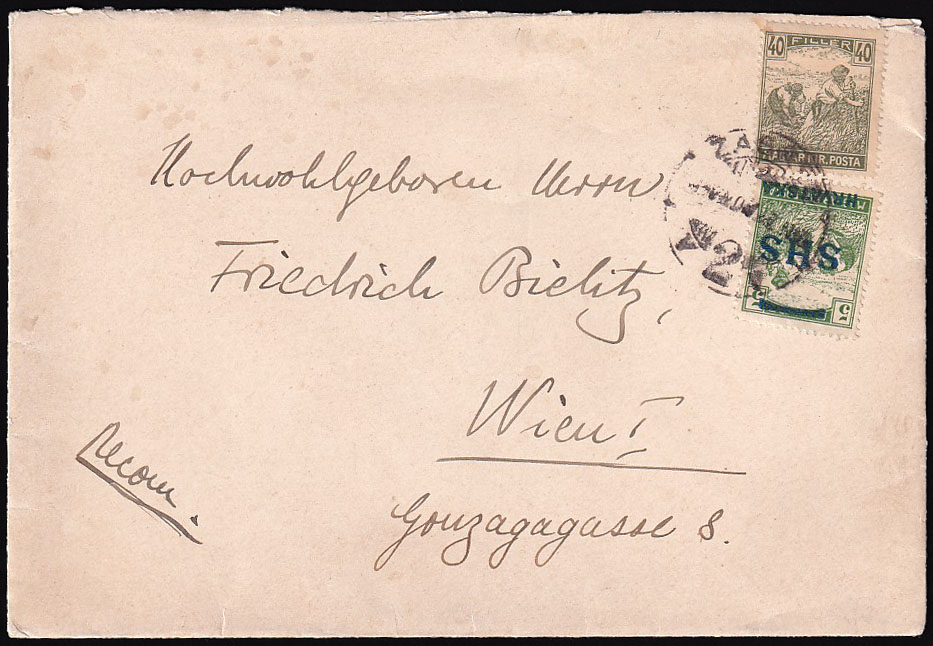 40 FILLER 40
MAGYAR KIR. POSTA
HRVATSKA
SHS
5 5
Hochwohlgeboren Herrn
Friedrich Bielitz,
Wien I
Gonzagagasse 8.
Recom.